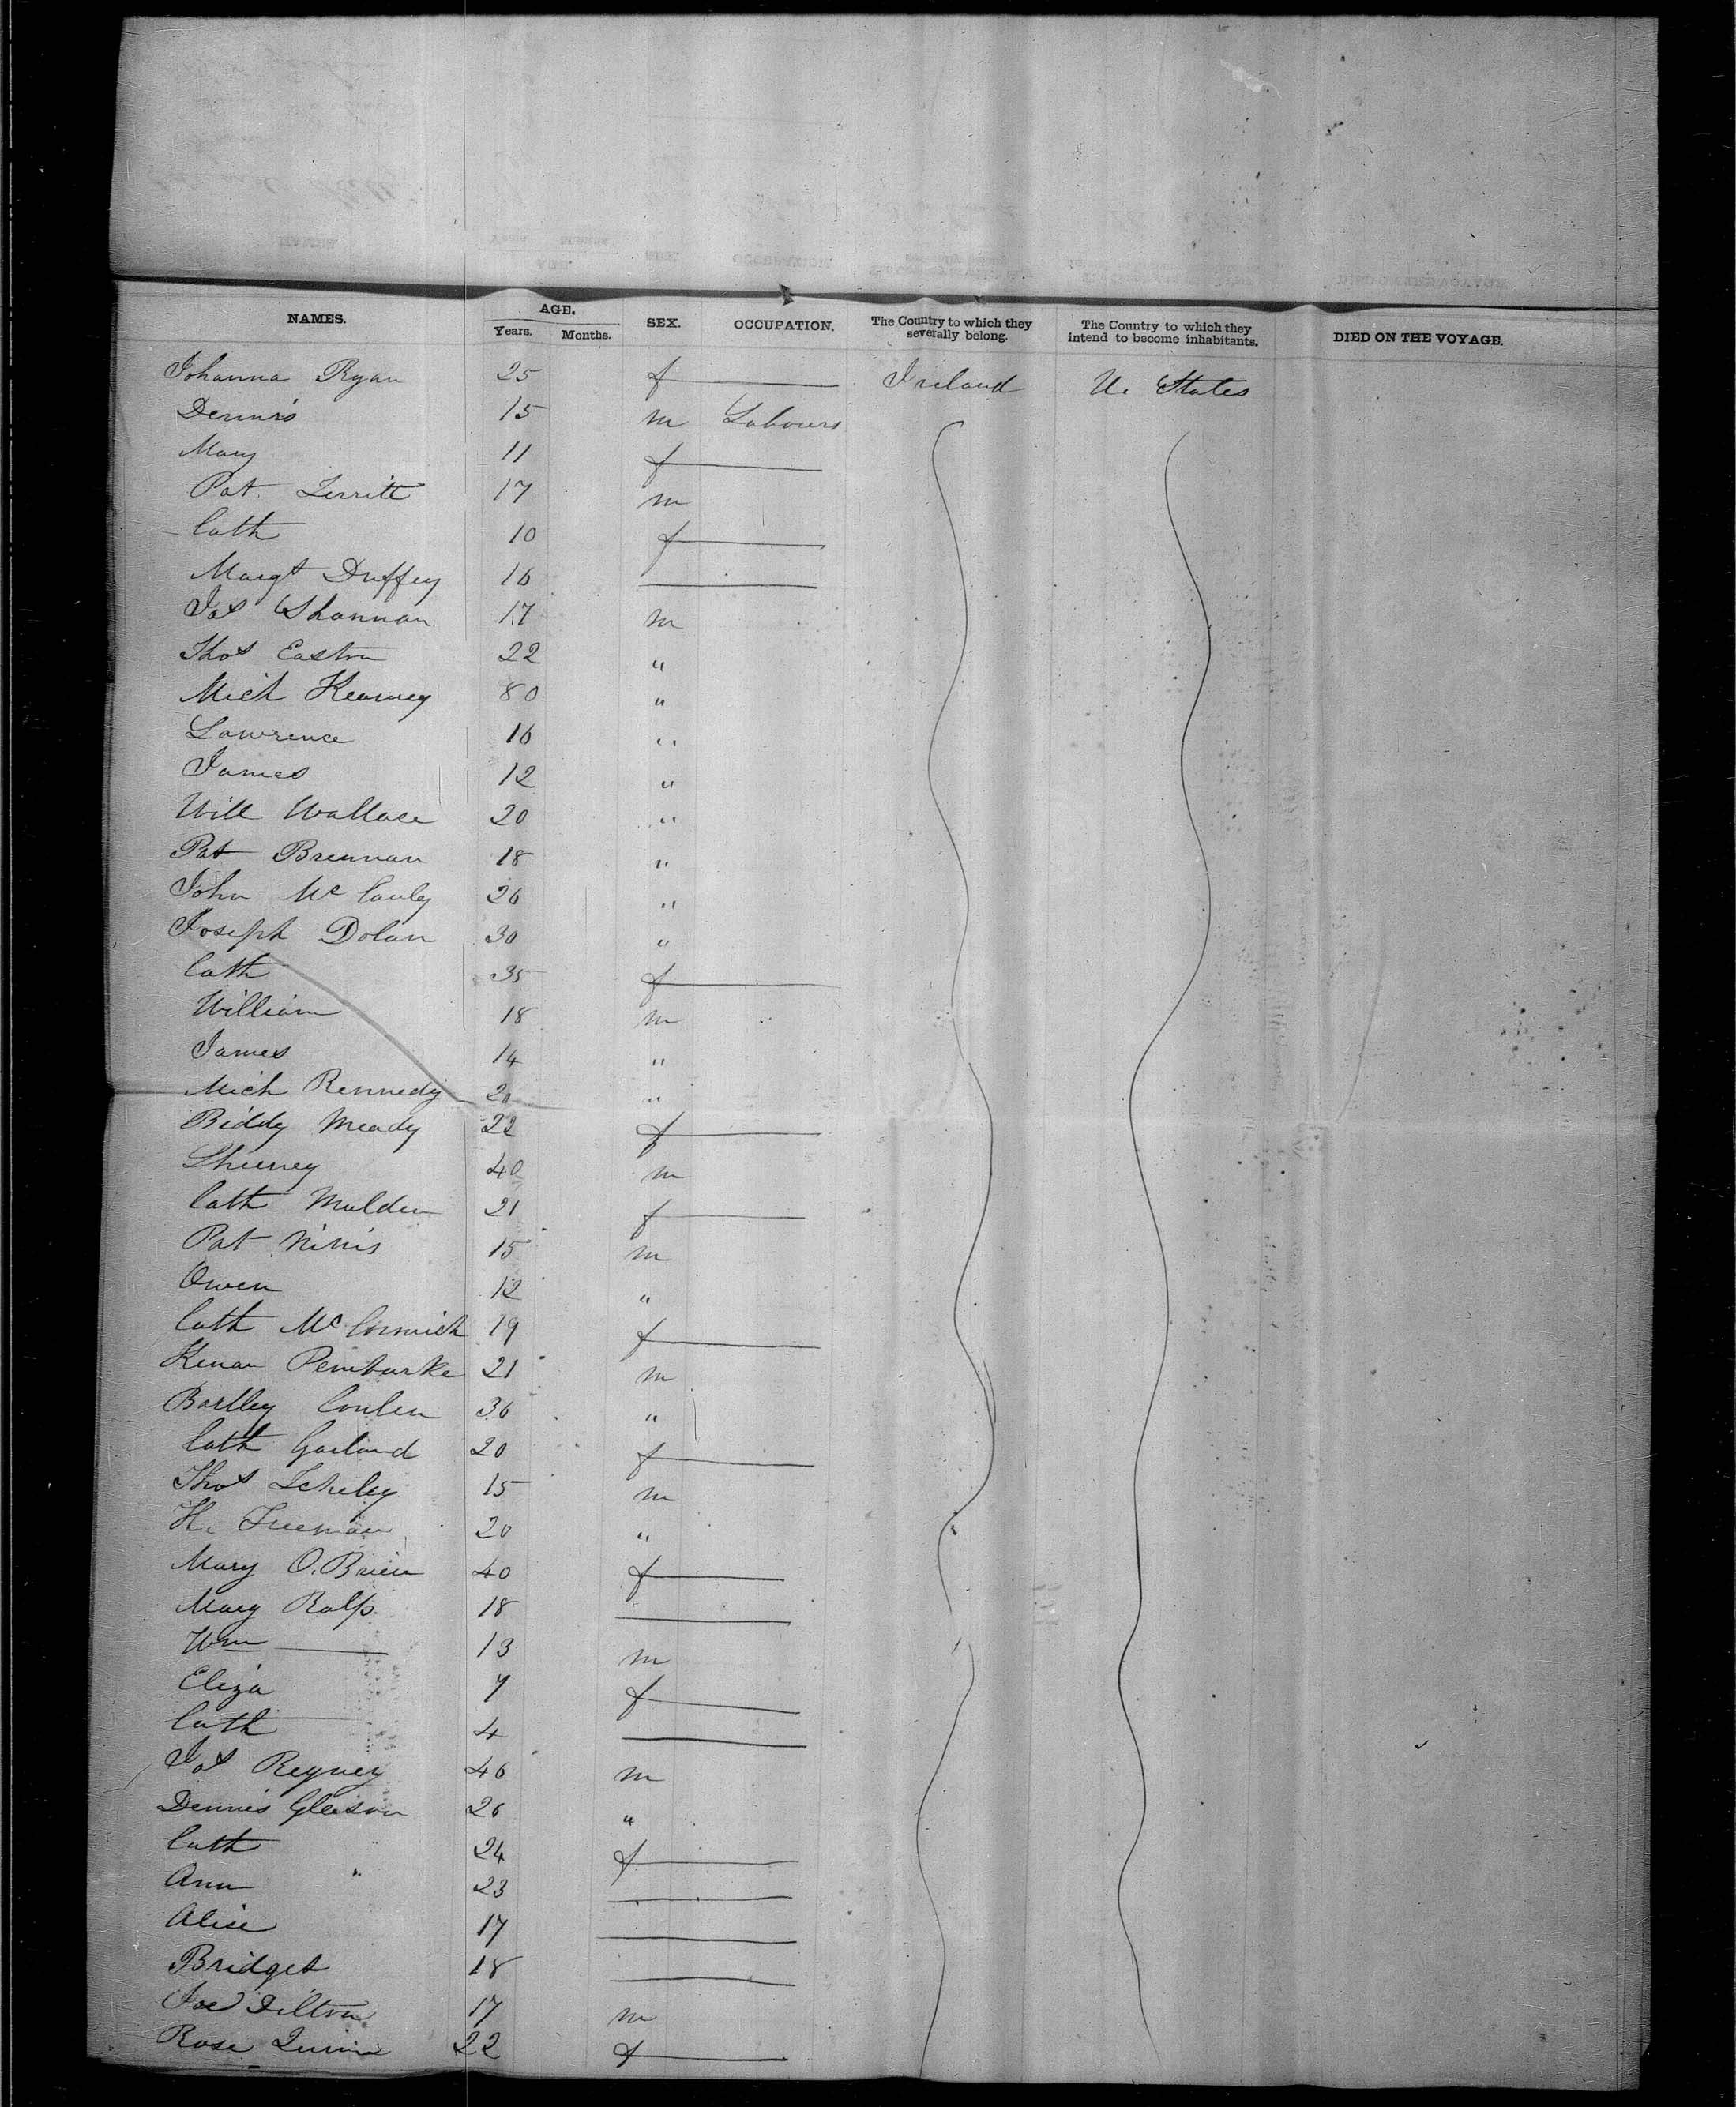 NAMES. AGE. Years. Months. SEX. OCCUPATION. The Country to which they severally belong. The Country to which they intend to become inhabitants. DIED ON THE VOYAGE.
Johanna Ryan 25 f Ireland U. States
Dennis 15 m Labourers
Mary 11 f
Pat. 17 m
Cath 10 f
Margt Duffey 16
Jas Shannon 17 m
Thos Easton 22 "
Mich Kearney 80 "
Lawrence 16 "
James 12 "
Will Wallace 20 "
Pat Brennan 18 "
John Mc Cauley 26 "
Joseph Dolan 30 "
Cath 35 f
William 18 m
James 14 "
Mich Kennedy 20 "
Biddy Meady 22 f
40 m
Cath Mulden 21 f
Pat Ninis 15 m
Owen 12 "
Cath Mc Cormick 19 f
Pembarke 21 m
Bartley Conlen 36 "
Cath Garland 20 f
Thos 15 m
H. Freeman 20 "
Mary O.Brien 40 f
Mary Ralp 18
Wm 13 m
Eliza 7 f
Cath 4
Jas Reyney 46 m
Dennis Gleeson 26 "
Cath 24 f
Ann " 23
Alise 17
Bridget 18
Joe Dilton 17 m
Rose Quinn 22 f